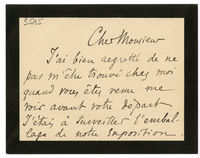 3515
Cher Monsieur
J'ai bien regretté de ne
pas m'être trouvé chez moi
quand vous êtes venu me
voir avant votre départ
J'étais à surveiller l'embal-
lage de notre Exposition.